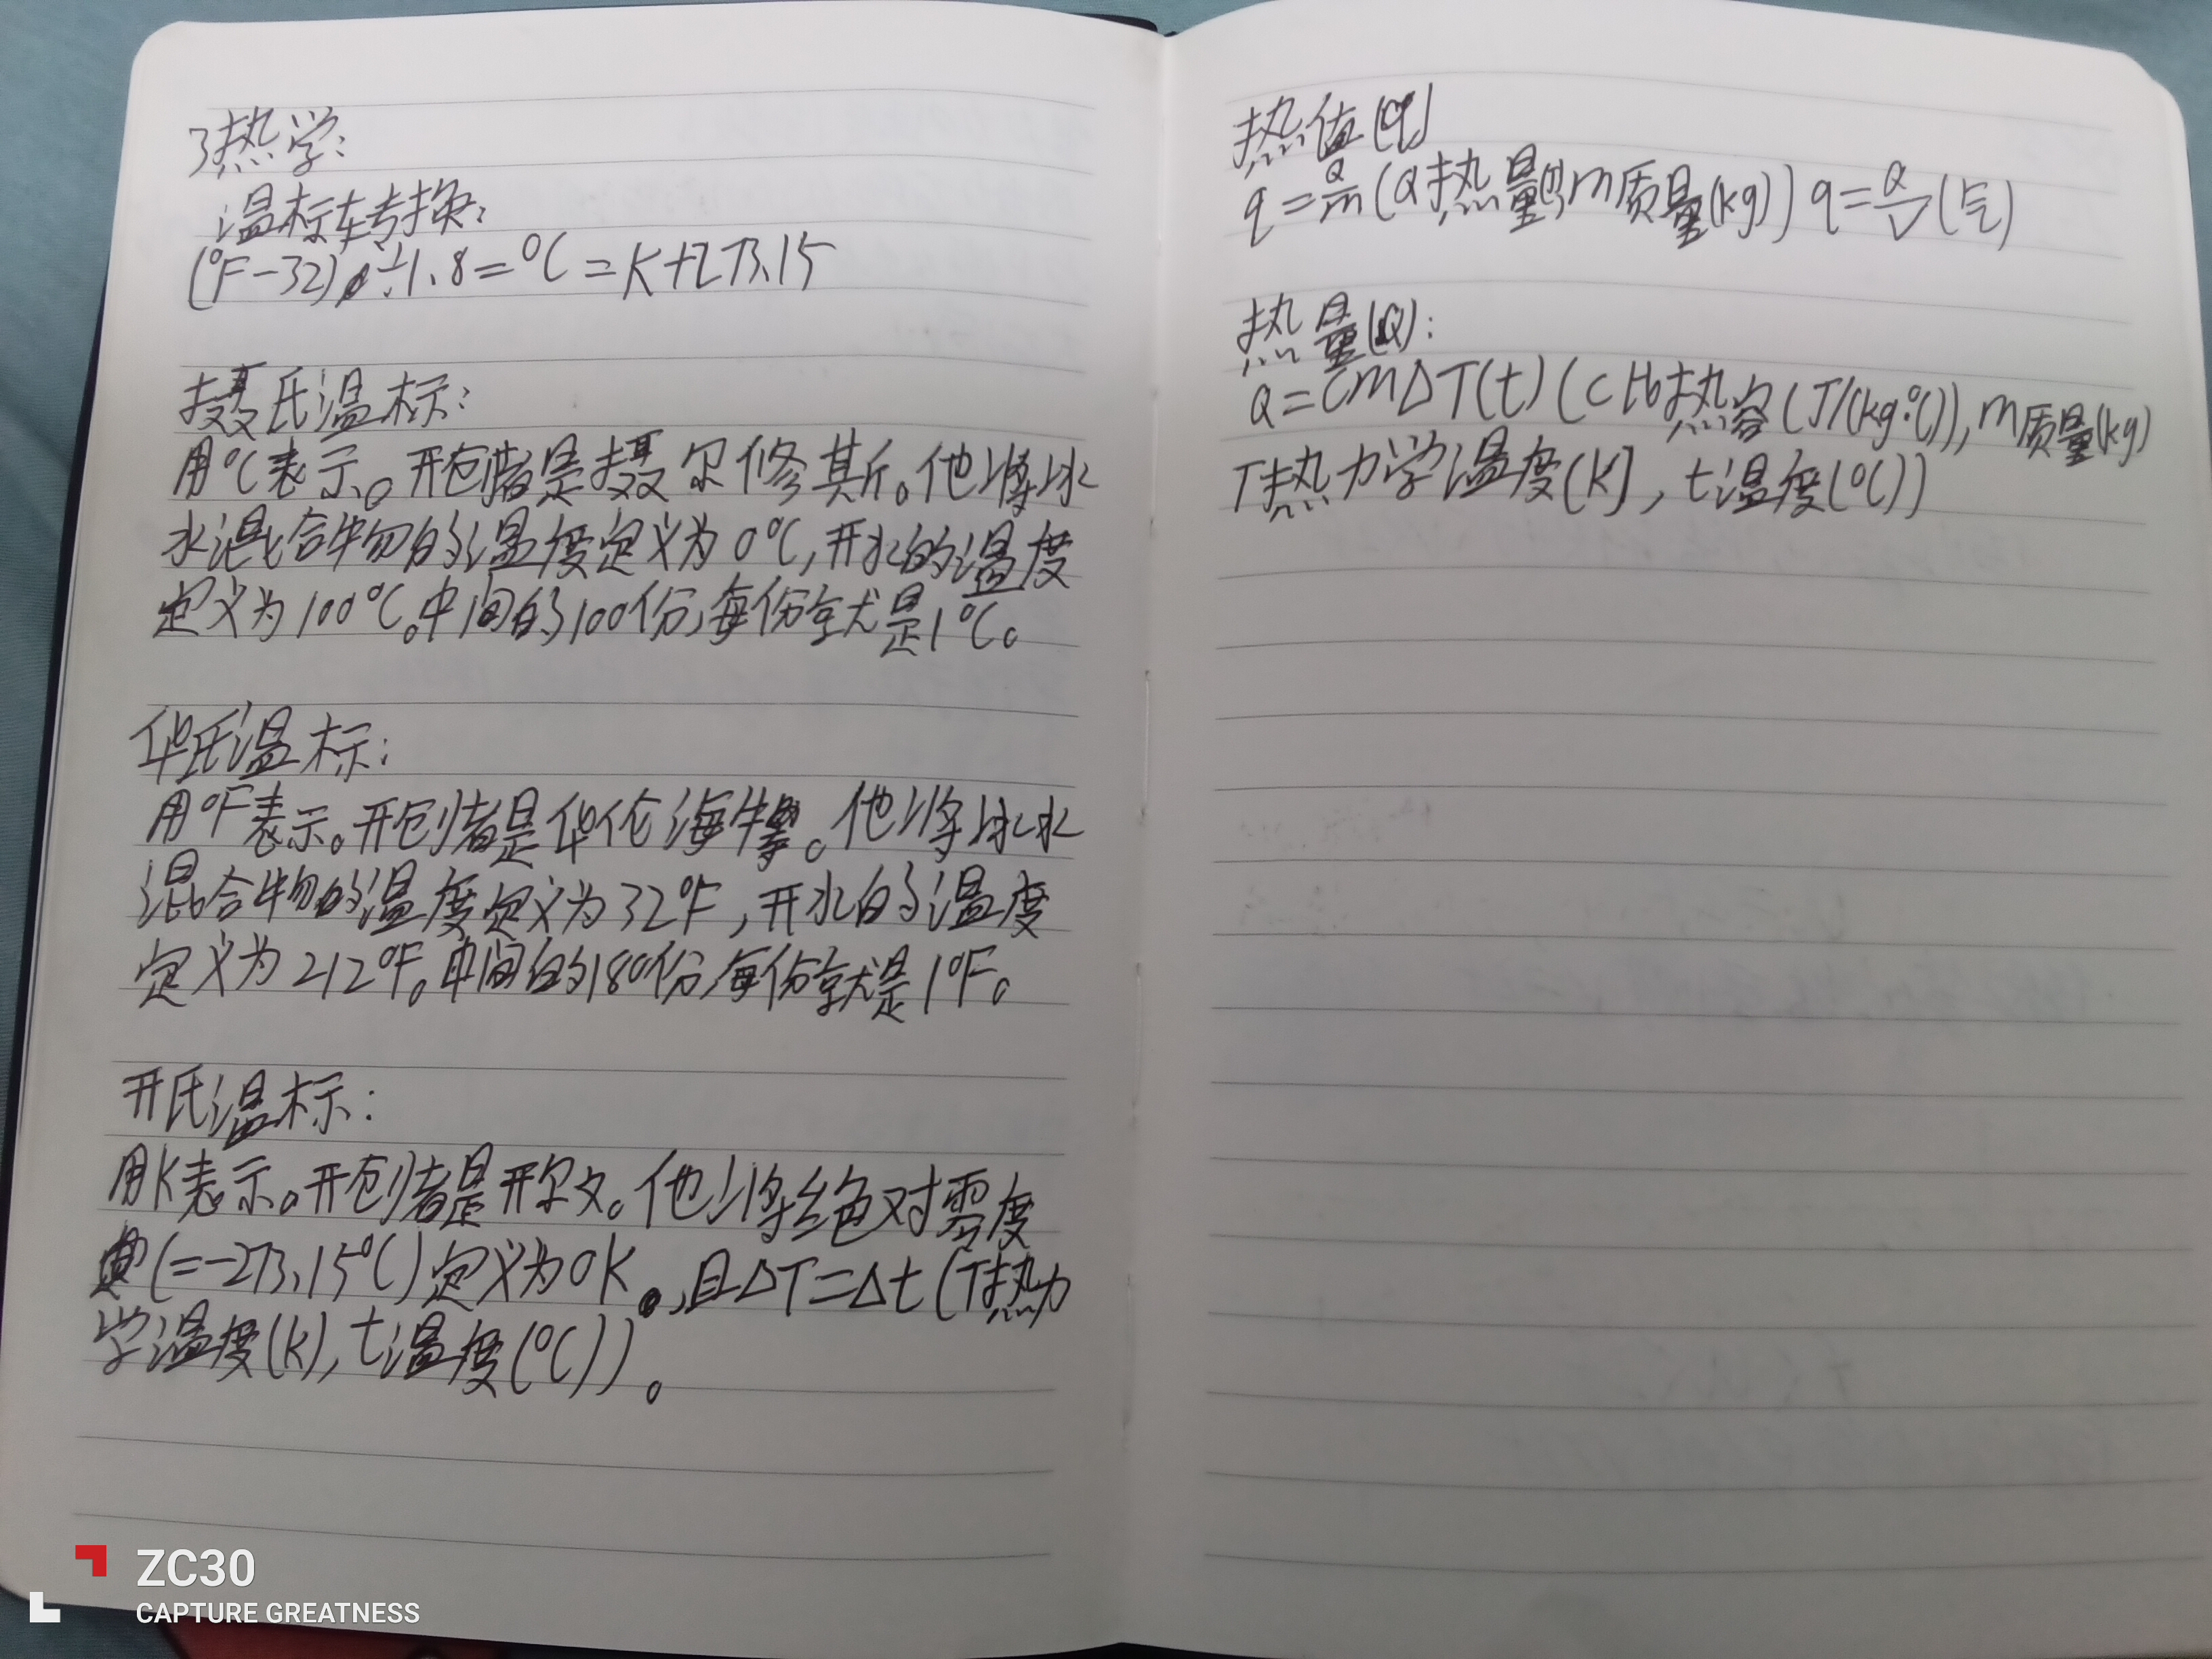 3热学:
温标转换:
(°F-32)÷1.8=°C=K+273.15
摄氏温标:
用°C表示。开创者是摄尔修斯。他将冰
水混合物的温度定义为0°C,开水的温度
定义为100°C。中间的100份,每份就是1°C。
华氏温标:
用°F表示。开创者是华伦海特。他将冰水
混合物的温度定义为32°F,开水的温度
定义为212°F。中间的180份,每份就是1°F。
开氏温标:
用K表示。开创者是开尔文。他将绝对零度
(=-273.15°C)定义为0K,且ΔT=Δt(T热力
学温度(K),t温度(°C))。
热值(q)
q=Q/m(Q热量(J)m质量(kg)) q=Q/V(气)
热量(Q):
Q=cmΔT(t)(c比热容(J/(kg·°C)),m质量(kg)
T热力学温度(K),t温度(°C))
ZC30
CAPTURE GREATNESS